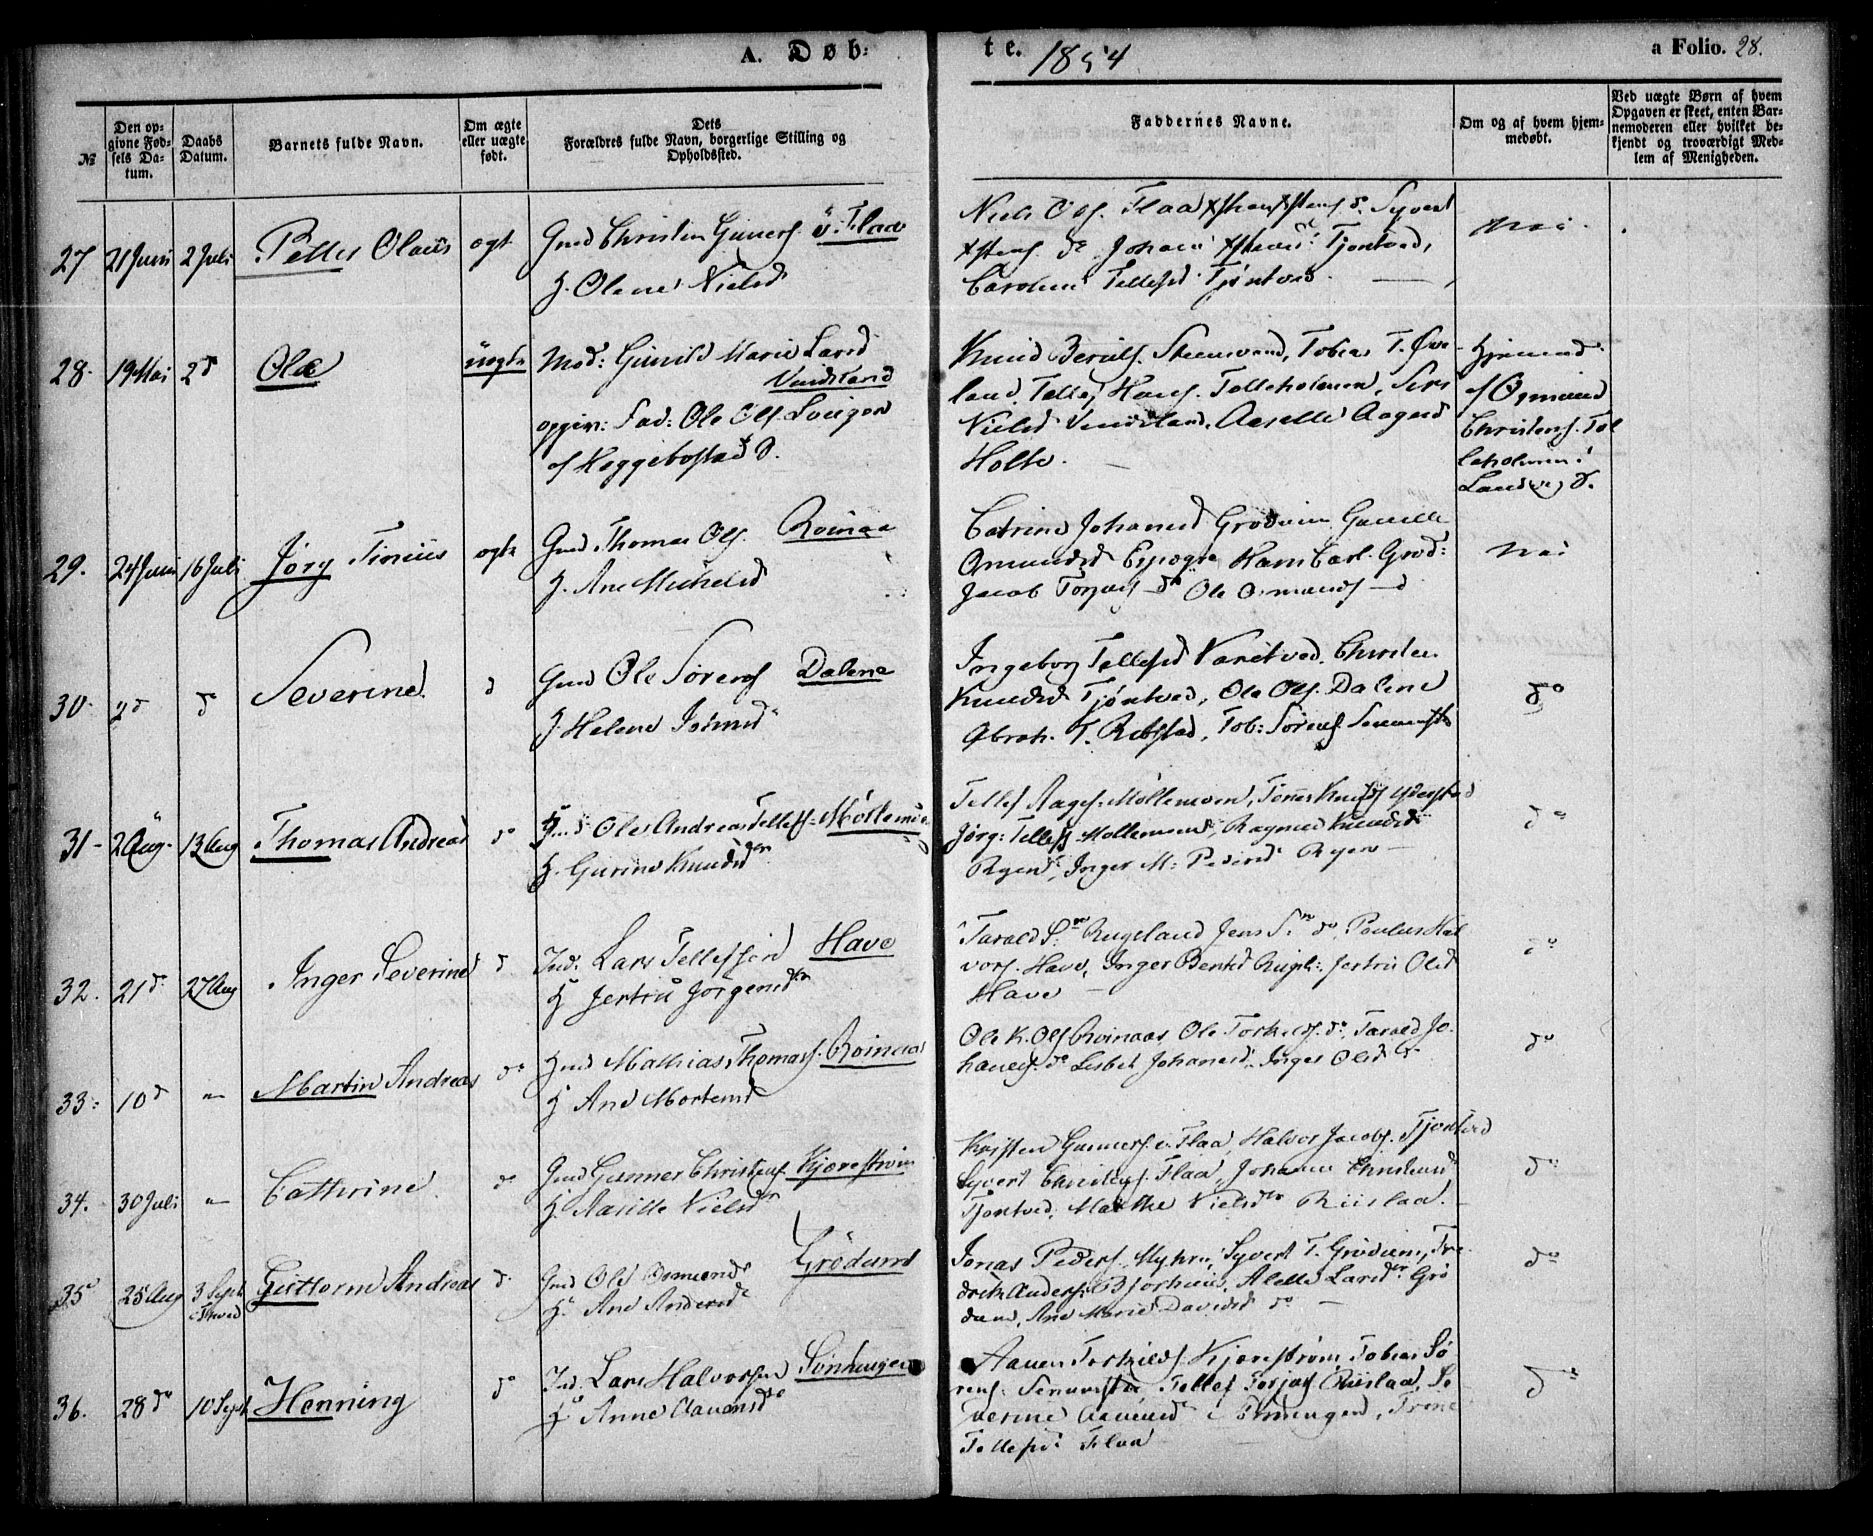 A. Døb:
te. 1854
a Folio. 28.
№
Den op-
givne Fød-
sels Da-
tum.
Daabs
Datum.
Barnets fulde Navn.
Om ægte
eller uægte
født.
Dets
Forældres fulde Navn, borgerlige Stilling og
Opholdssted.
Faddernes Navne.
Om og af hvem hjem-
medøbt.
Ved uægte Børn af hvem
Opgaven er skeet, enten Bar-
nemoderen eller hvilket be-
kjendt og troværdigt Med-
lem af Menigheden.
27 21 Juni 2 Juli Petter Olaus ægt Gmd Christen Guners. ö: Flaa
H. Olene Nielsd
Niels Ols. Flaa Syvert
do Johane Tjöntved,
Caroline Tellefsd Tjöntved
Nei
28. 19 Mai 2 d Ole uægte Mod: Gunild Marie Larsd
Vindsland
opgiv: Fad: Ole Ols. Lauger
af Heggebostad S.
Knud Beruls. Steensvand, Tobias T. Øve
land, Tellef Hans. Talleholmen, Siri
Nielsd Vindsland, Aaselle Aagesd
Holte.
Hjemmed
af Osmund
Christens. Tal
leholmen i
Landvig S.
29. 24 Juni 16 Juli Jørg Tinius ægte Gmd Thomas Ols. Roinaa
H. Ane Michelsd
Catrine Johansd Grodum Gunille
Omundsd Espegre Hans Carl. Grod:
Jacob Torjus do Ole Osmunds d
Nei
30. 2 d d Severine d Gmd Ole Sörens Dalene
H. Helene Jörensd
Ingeborg Tellefsd Vanetved, Christen
Knudsd Tjöntved, Ole Ols. Dalene
Abrah. T. Rebstad, Tob: Sörens
do
31 2 Aug 13 Aug Thomas Andreas do Ole Andreas Tellefs. Möllemoen
H. Gurine Knudsdtr
Tellef Aages. Möllemoen,
Jörg: Tellefs Mollemoen, Ragned Knudsd
Ryen, Inger M: Pedersd Ryen
do
32. 21 d 27 Aug Inger Severine d Ind. Lars Tellefssen Have
H Jertru Jörgensdtr
Tarald S. Rugeland Jens S. do, Paulus Hal
vors. Have, Inger Bentsd Rugel: Jertru Olsd
Have
do
33. 10 d " Martin Andreas do Gmd Mathias Thomass. Roinaas
H Ane Mortensd
Ole K. Ols Roinaas Ole Torkelds. do, Tarald Jo
hannes. do Lisbet Johansd, Inger Olsd do
do
34. 30 Juli " Catherine do Gmd Gunner Christens. Kjørestrøm
H. Aasille Nielsdtr
Kristen Gunners. ö. Flaa, Halvor Jacobs. Tjöntved
Syvert Christens. Flaa, Johanne Christensd
Tjöntved, Marthe Nielsdtr Riislaa.
do
35 25 Aug 3 Sept Guttorm Andreas d. Gmd Ole Osmunds Grödum
H. Ane Andersd
Jonas Peders. Myhren, Syvert T. Grödum, Fre
drik Anders. Alette Larsdtr Grö
dum, Ane Marie Davidsd do
do
36. 28 do 10 Sept Henning do Ind. Lars Halvorsen
H Anne Aanensd
Aanen Torkilds. Kjørestrøm Tobias Sö
rens. Tellef Torjus. Riislaa, Se
verine Aanensd i Trine
Tellefsd Flaa
do